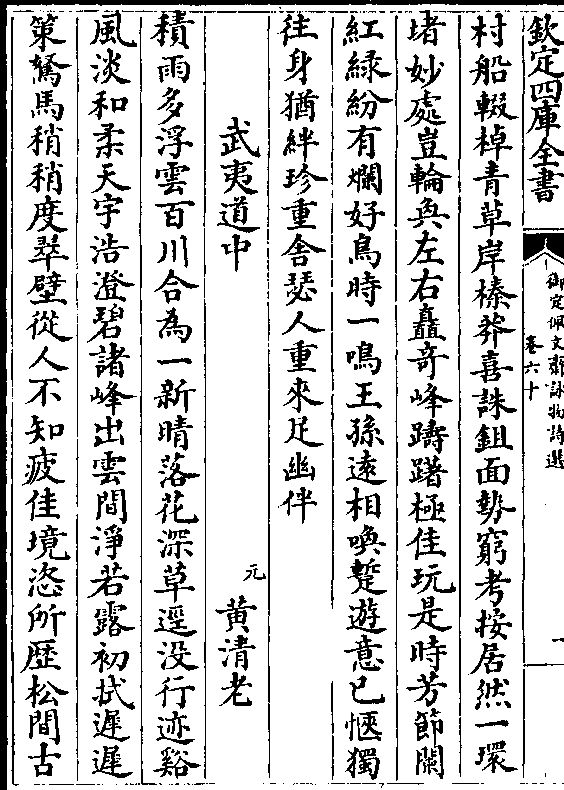 欽定四庫全書
御定佩文齋詠物詩選
卷六十
一
村船輟棹青草岸榛莽喜誅鉏面勢窮考按居然一環
堵妙處豈輪奐左右矗奇峰躊躇極佳玩是時芳節闌
紅緑紛有爛好鳥時一鳴王孫遠相喚蹔遊意已愜獨
往身猶絆珍重舍瑟人重來足幽伴
武夷道中
元
黄清老
積雨多浮雲百川合為一新晴落花深草逕没行迹谿
風淡和柔天宇浩澄碧諸峰出雲間淨若露初拭遲遲
策駑馬稍稍度翠壁從人不知疲佳境恣所歴松間古